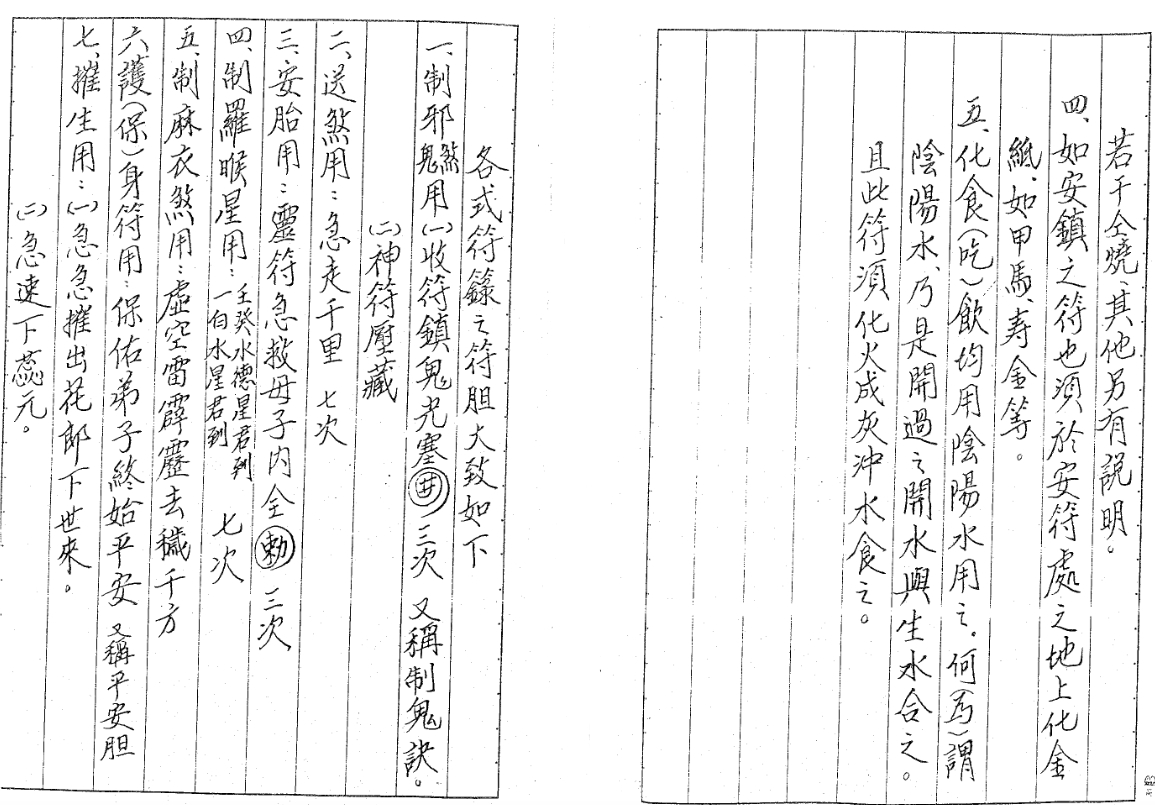 若干仝燒、其他另有說明。
四、如安鎮之符也須於安符處之地上化金
紙、如甲馬、寿金等。
五、化食(吃)飲均用陰陽水用之。何(為)謂
陰陽水、乃是開過之開水與生水合之。
且此符須化火成灰沖水食之。
各式符籙之符胆大致如下
一、制邪煞鬼用(一)收符鎮鬼光塞井三次 又稱制鬼訣。
(二)神符壓藏
二、送煞用：急走千里 七次
三、安胎用：靈符急救母子內全勅 三次
四、制羅睺星用：壬癸水德星君到 一白水星君到 七次
五、制麻衣煞用：虛空雷霹靂去穢千方
六、護(保)身符用：保佑弟子終始平安 又稱平安胆
七、摧生用：(一)急急摧出花郎下世來。
(二)急速下蕊元。